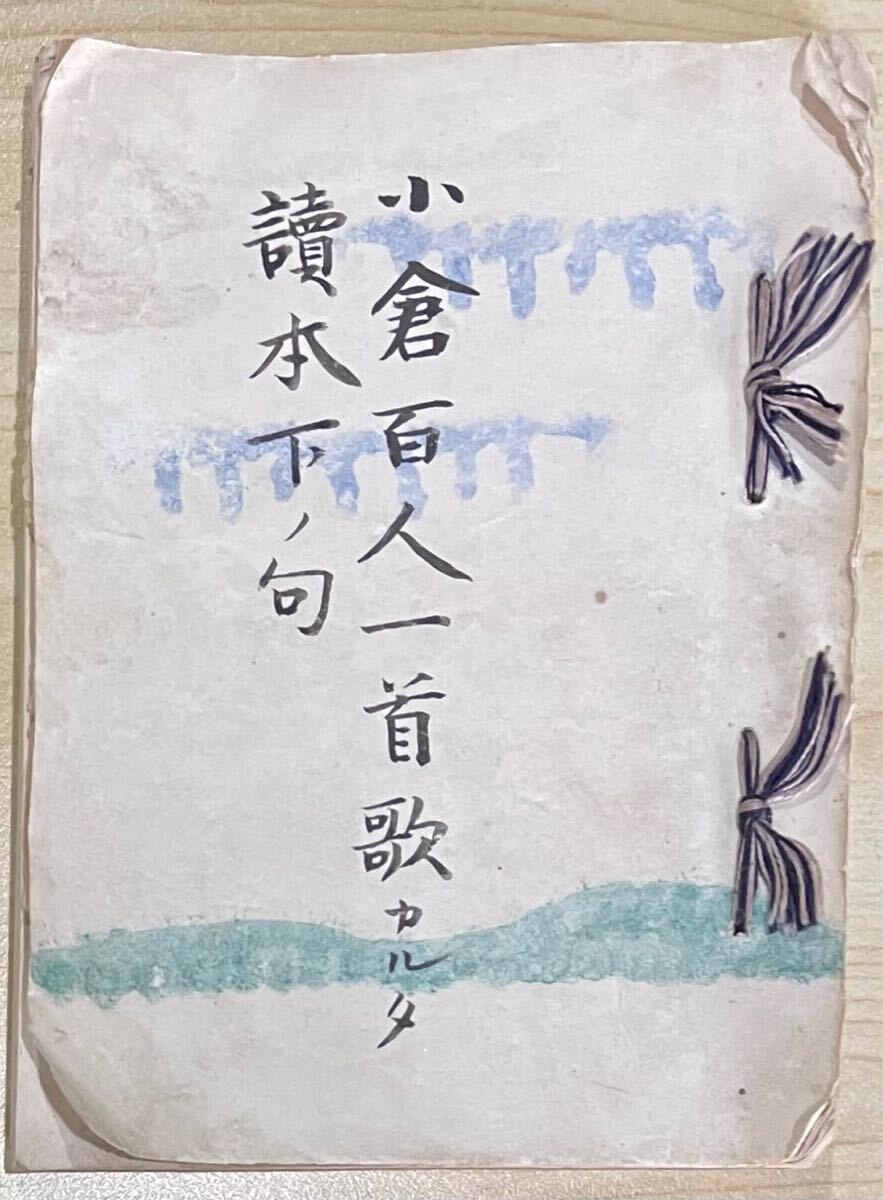 小倉百人一首歌カルタ
讀本下ノ句